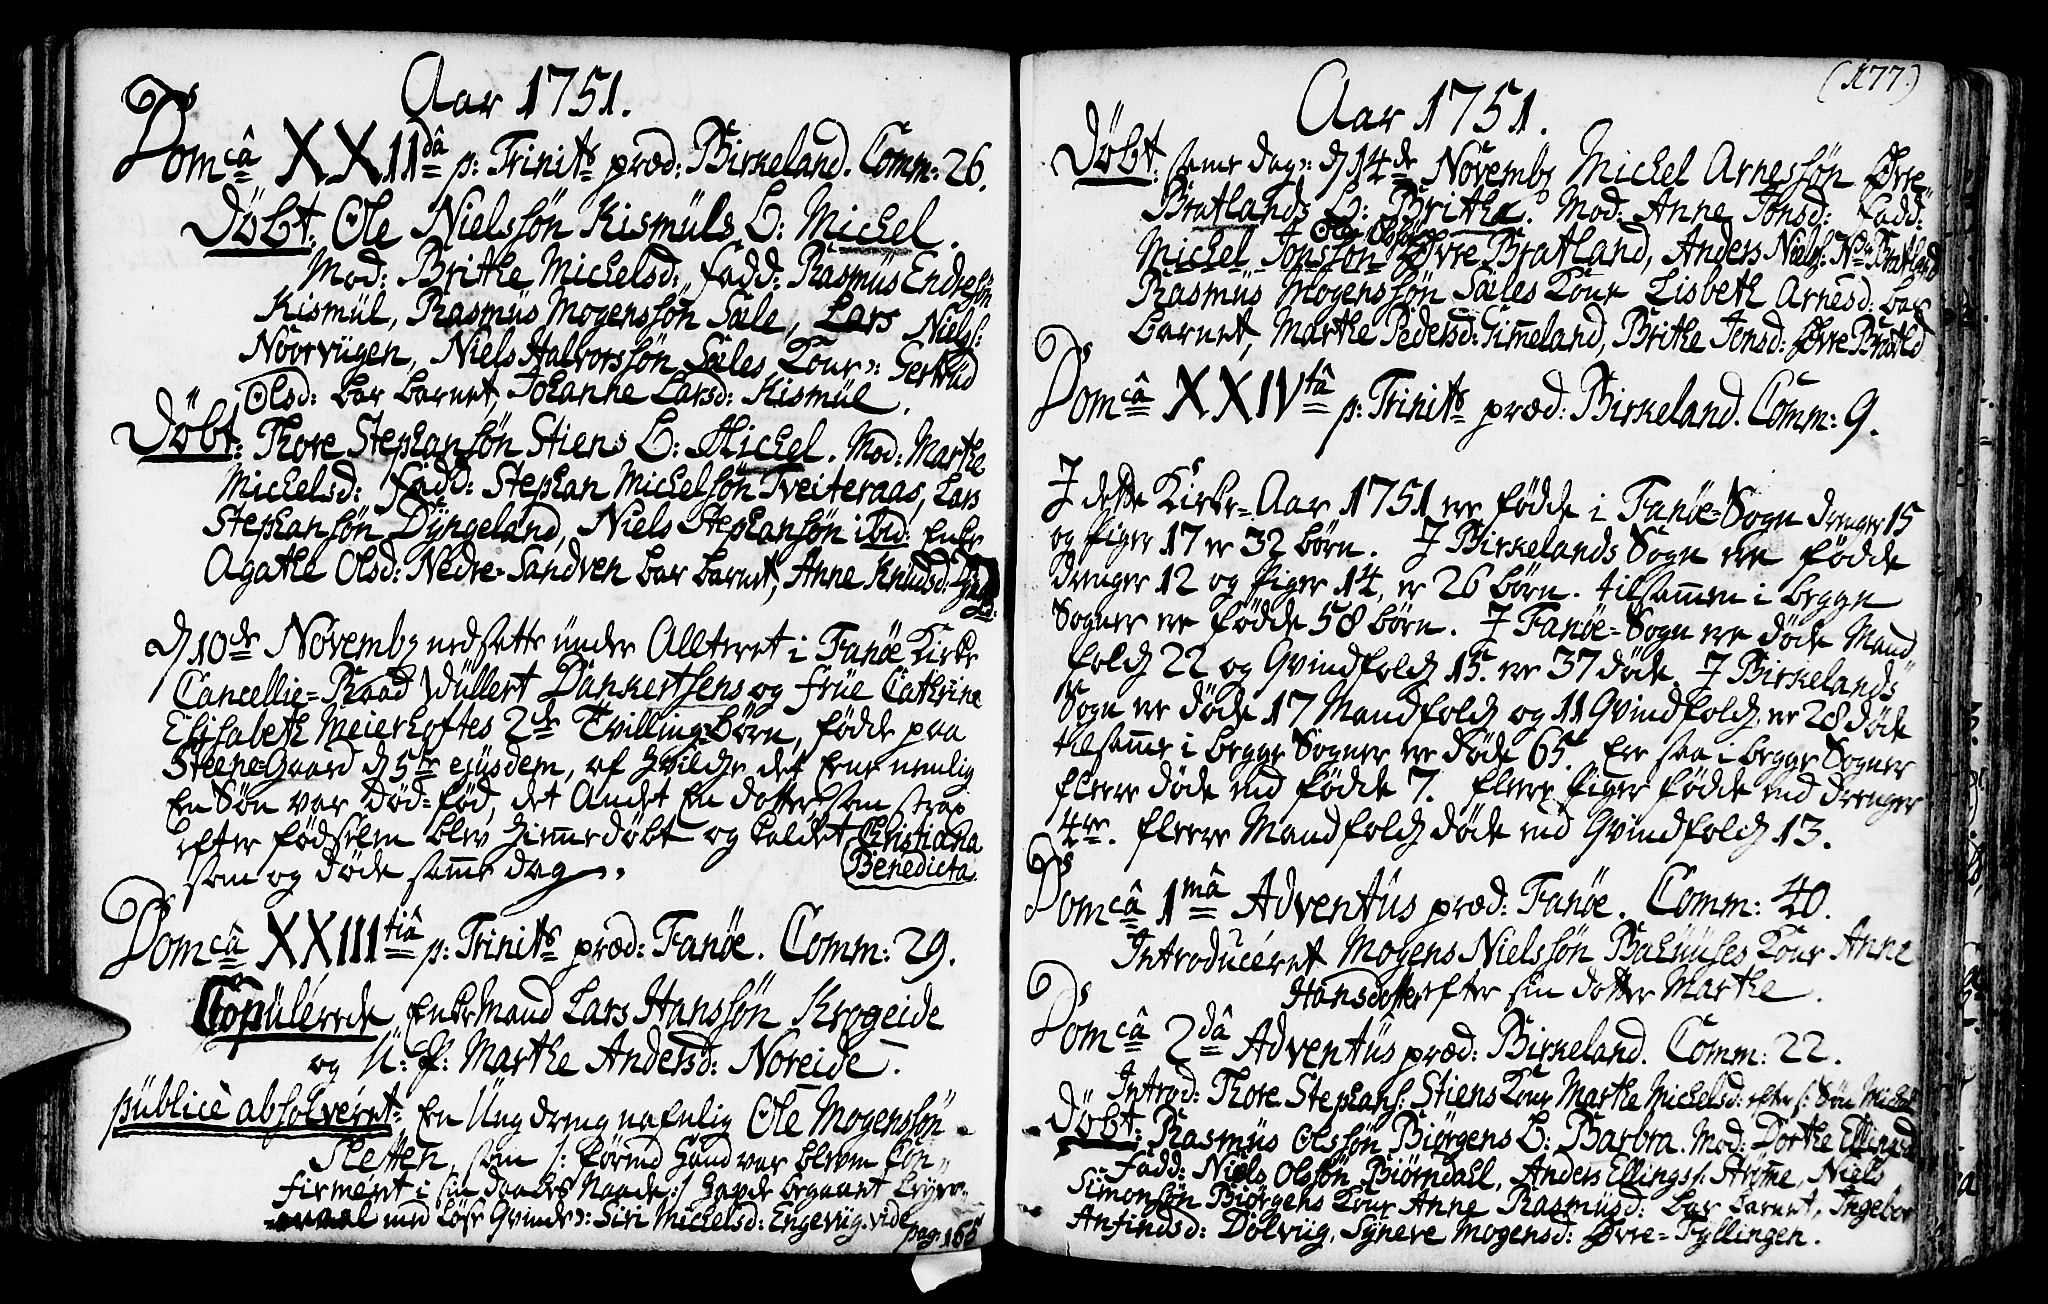 Aar 1751.
Domcâ XXIIdâ p: Trinits præd: Birkeland. Comm: 26.
Döbt: Ole Nielssøn Kismüls b: Michel.
Mod: Brithe Michelsd: fadd: Rasmüs Endresøn
Kismül, Rasmüs Mogenssøn Sæle, Lars Nielss:
Noorvügen, Niels Halvorssøn Sæles Kour: Gertrüd
Olsd: bar barnet, Johanne Larsd: Kismül.
Döbt: Thore Stephanssøn Stiens b: Michel. Mod: Marthe
Michelsd: Fadd: Stephan Michelsøn Tveiteraas, Lars
Stephanssøn Dyngeland, Niels Stephanssøn ibid: Enke
Agathe Olsd: Nedre-Sandven bar barnet, Anne Knudsd:
d 10de Novembr nedsatte ünder Allteret i Fanöe Kirke
Cancellie-Raad Wüllert Dankertsens og früe Cathrine
Elisabeth Meierhoftes 2de Tvilling-Börn, födde paa
Steene-Gaard d 5te ejüsdem, af hvilche det Eene nemlig
En Søn var død-fød, det Andet En dotter som strax
efter fødselen blev hiemedöbt og kaldet Christiana
Benedicta
som og døde samme dag.
Domcâ XXIIItiâ p: Trinits præd: Fanöe. Comm: 29.
Copülerede EnkeMand Lars Hanssøn Krogeide
og U: P: Marthe Andersd: Noreide.
püblicè absolveret: En Ung dreng nafnlig Ole Mogenssøn
Sletten, som /: förend hand var bleven Con-
firmeret i sin daabes Naade :/ havde begaaet Leyer-
maal med löse Qvinde: Siri Michelsd: Engevüg. vide
pag: 165
(177)
Aar 1751.
Döbt: samme dag: d 14de Novembr Michel Arnessøn Øvre
Bratlands b: Brithe. Mod: Anne Jonsd: fadd:
Ole Olssøn
Michel Jonssøn Øvre Bratland, Anders Nielss: Ne Bratland
Rasmüs Mogenssøn Sæles Kour Lisbeth Arnesd: bar
barnet, Marthe Pedersd: Gimeland, Brithe Jensd: Øvre Bratld
Domcâ XXIVtâ p: Trinits præd: Birkeland. Comm: 9.
J dette Kirke-Aar 1751 ere födde i Fanöe-Sogn drenger 15
og Piger 17 er 32 börn. J Birkelands Sogn ere födde
drenger 12 og Piger 14, er 26 börn. tilsammen i begge
Sogner ere födde 58 börn. J Fanöe-Sogn ere döde Mand
folch 22 og Qvindfolch 15. er 37 döde. J Birkelands
Sogn ere döde 17 Mandfolch og 11 Qvindfolch er 28 döde
tilsamme i begge Sogner ere döde 65. Ere saa i begge Sogner
fleere döde end födde 7. fleere Piger födde end drenger
4re. fleere Mandfolch döde end Qvindfolch 13.
Domcâ 1mâ Adventüs præd: Fanöe. Comm: 40.
Introduceret Mogens Nielssøn Bahüüses Kour Anne
Hansdotter efter sin dotter Marthe.
Domcâ 2dâ Adventüs præd: Birkeland. Comm: 22.
Introd: Thore Stephans: Stiens Kour Marthe Michelsd: efter s: Søn Michel
Döbt: Rasmüs Olssøn Biörgens b: Barbra. Mod: Dorthe Ellingsd
Fadd: Niels Olssøn Biörndall, Anders Ellingss: Strøme, Niels
Simonsøn Biörgens Kour Anne Rasmüsd: bar barnet, Ingebor
Anfindsd: Dolvüg, Syneve Mogensd: Øvre-Fyllingen.